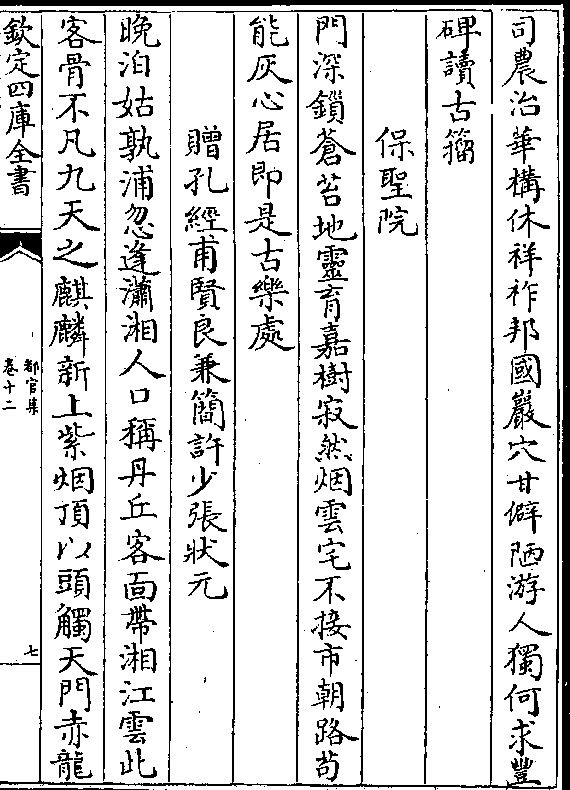 司農治華構休祥祚邦國巖穴甘僻陋游人獨何求豐
碑讀古籕
保聖院
門深鎖蒼苔地靈育嘉樹寂然烟雲宅不接市朝路茍
能灰心居即是古樂處
贈孔經甫賢良兼簡許少張狀元
晩泊姑孰浦忽逢瀟湘人口稱丹丘客面帶湘江雲此
客骨不凡九天之麒麟新上紫烟頂以頭觸天門赤龍
欽定四庫全書
都官集
卷十二
七